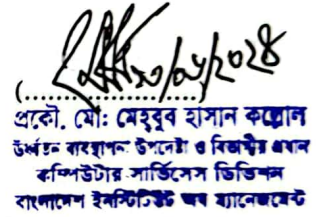 ২০/০৮/২০২৪
(............................)
প্রকৌ. মৌ: মেহবুব হাসান কল্লোল
উর্ধ্বতন ব্যবস্থাপনা উপদেষ্টা ও বিভাগীয় প্রধান
কম্পিউটার সার্ভিসেস ডিভিশন
বাংলাদেশ ইনস্টিটিউট অব ম্যানেজমেন্ট